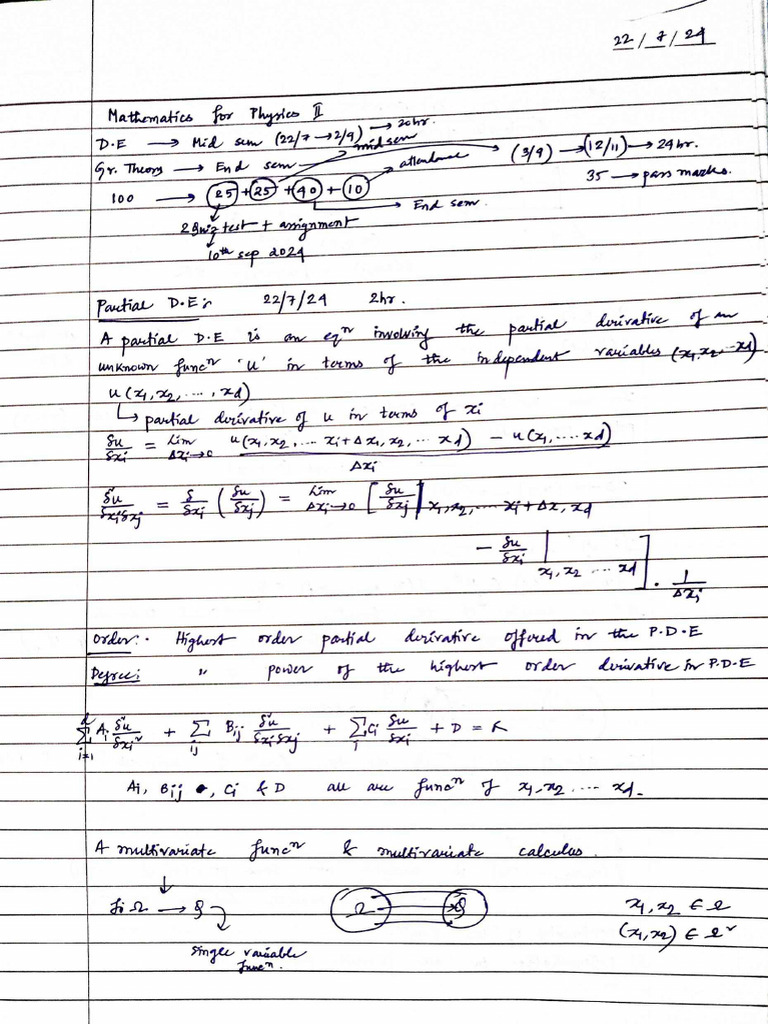 22/7/24
Mathematics for Physics II
D.E → Mid sem (22/7 → 2/9) → 20hr.
Gr. Theory → End sem → (3/9) → (12/11) → 24hr.
midsem
attendance
35 → pass marks.
100 → 25 + 25 + 40 + 10
→ End sem.
2 Quiz test + assignment
10th sep 2024
Partial D.E:- 22/7/24 2hr.
A partial D.E is an eqⁿ involving the partial derivative of an
unknown funcⁿ 'u' in terms of the independent variables (x₁,x₂,...xd)
u(x₁,x₂,...,xd)
↳ partial derivative of u in terms of xi
δu/δxi = Lim Δxi→0 u(x₁,x₂,... xi+Δx₁,x₂,... xd) - u(x₁,....xd) / Δxi
δ²u/δxiδxj = δ/δxi (δu/δxj) = Lim Δxi→0 [δu/δxj | x₁,x₂,... xi+Δx, xd
- δu/δxi | x₁,x₂ .... xd] . 1/Δxi
Order:- Highest order partial derivative offered in the P.D.E
Degree: " power of the highest order derivative in P.D.E
d∑i=1 Ai δ²u/δxi² + ∑ij Bij δ²u/δxiδxj + ∑i Ci δu/δxi + D = K
Ai, Bij, Ci & D all are funcⁿ of x₁,x₂ .... xd.
A multivariate funcⁿ & multivariate calculus.
↓
f: Ω → S Ω S x₁,x₂ ∈ Ω
(x₁,x₂) ∈ Ω²
single variable
funcⁿ.